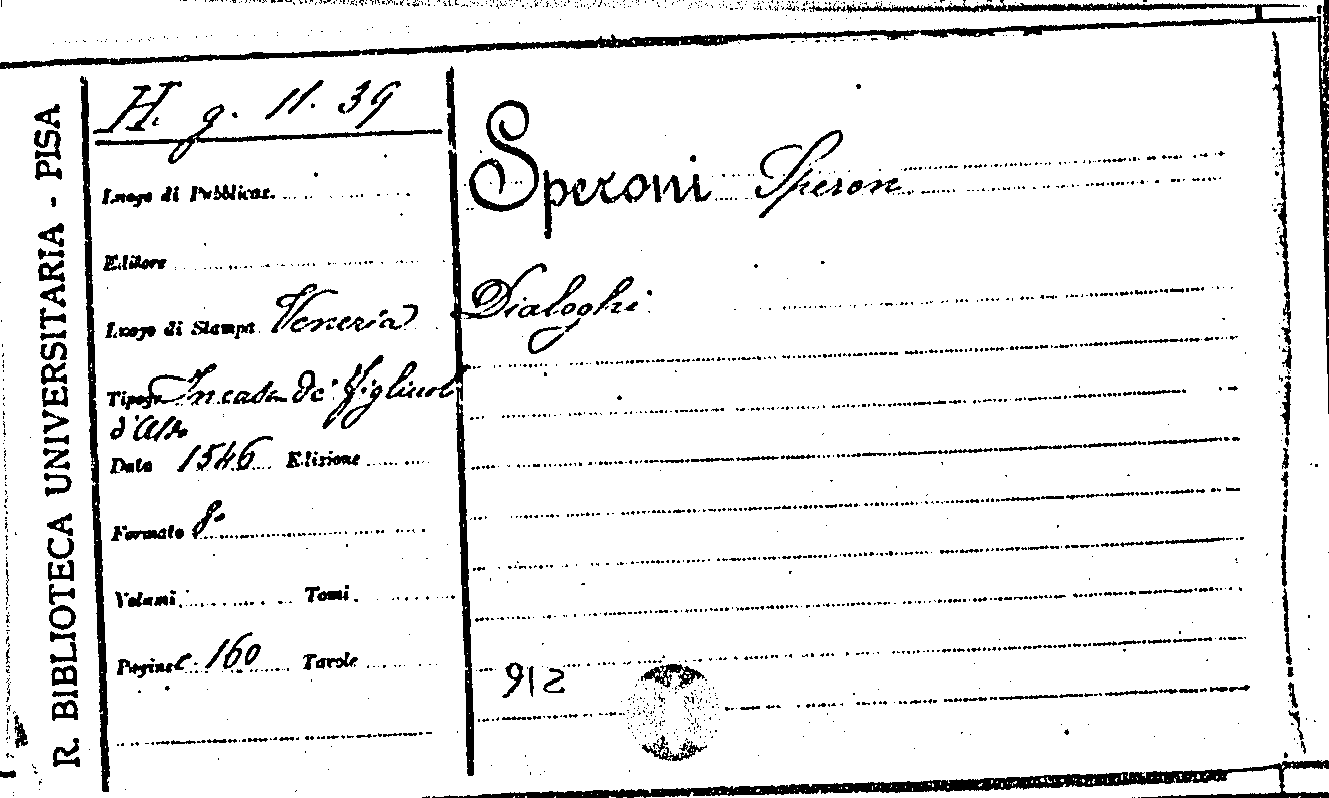 R. BIBLIOTECA UNIVERSITARIA - PISA
H. g. 11. 39
Luogo di Pubblicaz.
Editore
Luogo di Stampa Venezia
Tipogr. In casa de' figliuoli
d'Aldo
Data 1546 Edizione
Formato 8°
Volumi Tomi
Pagine c. 160 Tavole
Speroni Speron
Dialoghi
912